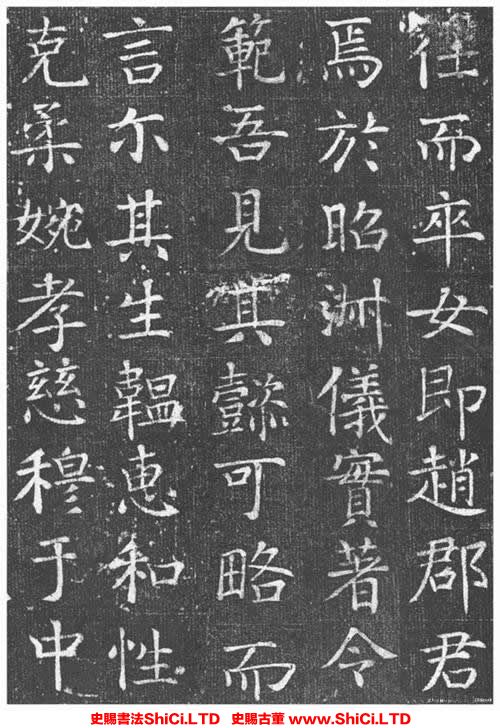 往而卒女即趙郡君
焉於昭淑儀實著令
範吾見其懿可略而
言尔其生韞惠和性
克柔婉孝慈穆于中
史賜書法ShiCi.LTD 史賜古董 www.ShiCi.LTD